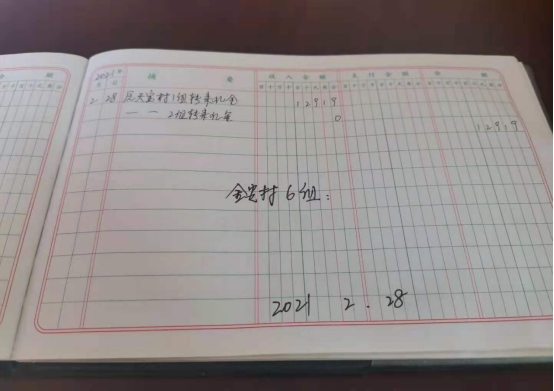 2021年
月 日 摘 要 收入金额 支付金额 余 额
2 28 1组转来礼金 12919
一 一 2组转来礼金 0
12919
金党村6组:
2021 2.28